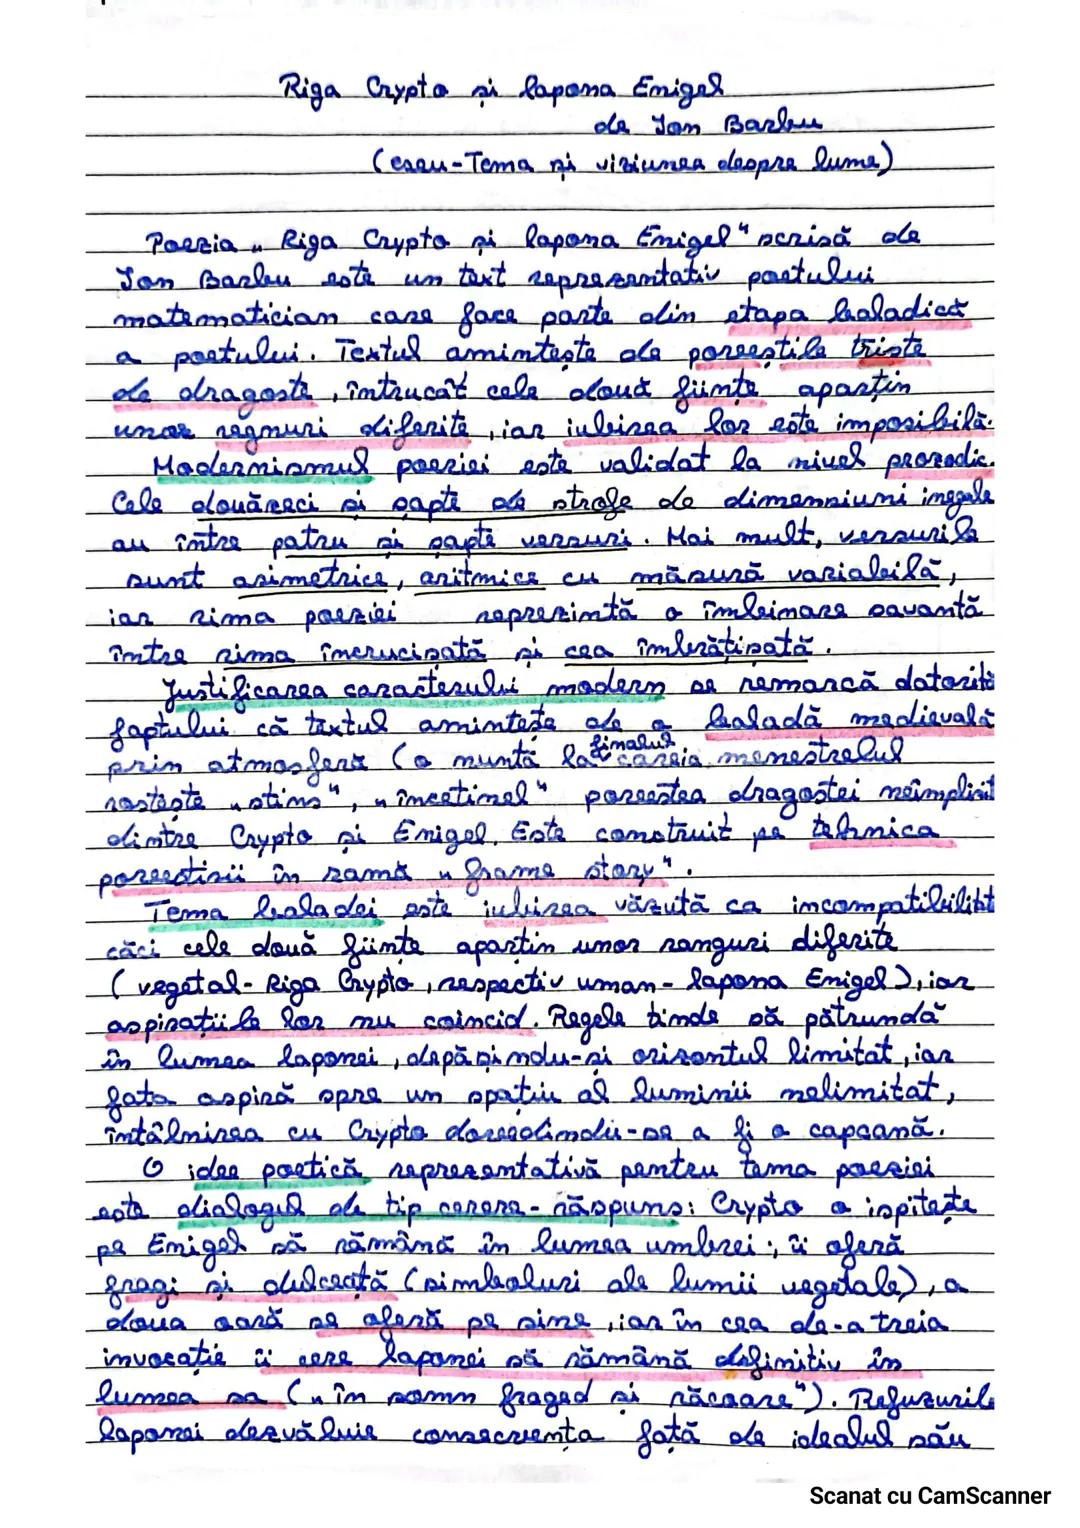 Riga Crypto și lapona Enigel
de Ion Barbu
(eseu-Tema și viziunea despre lume)
Poezia „Riga Crypto și lapona Enigel" scrisă de
Ion Barbu este un text reprezentativ poetului
matematician care face parte din etapa baladică
a poetului. Textul amintește de poveștile triste
de dragoste, întrucât cele două ființe aparțin
unor regnuri diferite, iar iubirea lor este imposibilă.
Modernismul poeziei este validat la nivel prozodic.
Cele douăzeci și șapte de strofe de dimensiuni inegale
au între patru și șapte versuri. Mai mult, versurile
sunt asimetrice, aritmice cu măsură variabilă,
iar rima poeziei reprezintă o îmbinare savantă
între rima încrucișată și cea îmbrățișată.
Justificarea caracterului modern se remarcă datorită
faptului că textul amintește de o baladă medievală
prin atmosferă (o nuntă la finalul căreia menestrelul
rostește „stins", „încetinel" povestea dragostei neîmplinit
dintre Crypto și Enigel. Este construit pe tehnica
povestirii în ramă „frame story".
Tema baladei este iubirea văzută ca incompatibilitat
căci cele două ființe aparțin unor ranguri diferite
(vegetal-Riga Crypto, respectiv uman-lapona Enigel), iar
aspirațiile lor nu coincid. Regele tinde să pătrundă
în lumea laponei, depășindu-și orizontul limitat, iar
fata aspiră spre un spațiu al luminii nelimitat,
întâlnirea cu Crypto dovedindu-se a fi o capcană.
O idee poetică reprezentativă pentru tema poeziei
este dialogul de tip cerere-răspuns: Crypto o ispitește
pe Enigel să rămână în lumea umbrei; îi oferă
fragi și dulceață (simboluri ale lumii vegetale), a
doua oară se oferă pe sine, iar în cea de-a treia
invocație îi cere laponei să rămână definitiv în
lumea sa („în somn fraged și răcoare"). Refuzurile
laponei dezvăluie consecvența față de idealul său
Scanat cu CamScanner